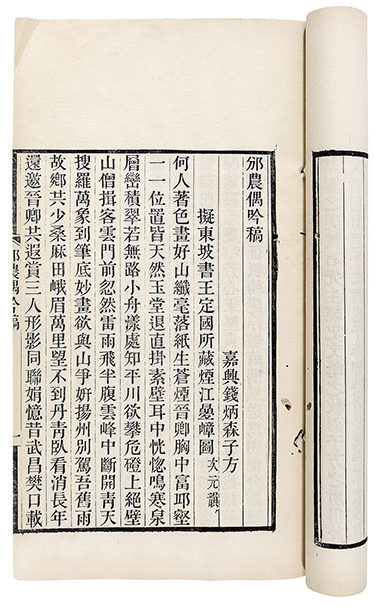 邠農偶吟稿
嘉興錢炳森子方
擬東坡書王定國所藏煙江疊嶂圖 次元韻
何人著色畫好山纖毫落紙生蒼煙晉卿胸中富邱壑
一一位置皆天然玉堂退直掛素壁耳中恍惚鳴寒泉
層巒積翠若無路小舟漾處知平川欲攀危磴上絕壁
山僧揖客雲門前忽然雷雨飛半腹雲峰中斷開靑天
搜羅萬象到筆底妙畫欲與山爭姸揚州別駕吾舊雨
故鄉共少桑麻田峨眉萬里望不到丹靑臥看消長年
還邀晉卿共遐賞三人形影同聯娟憶昔武昌樊口載
邠農偶吟稿 一